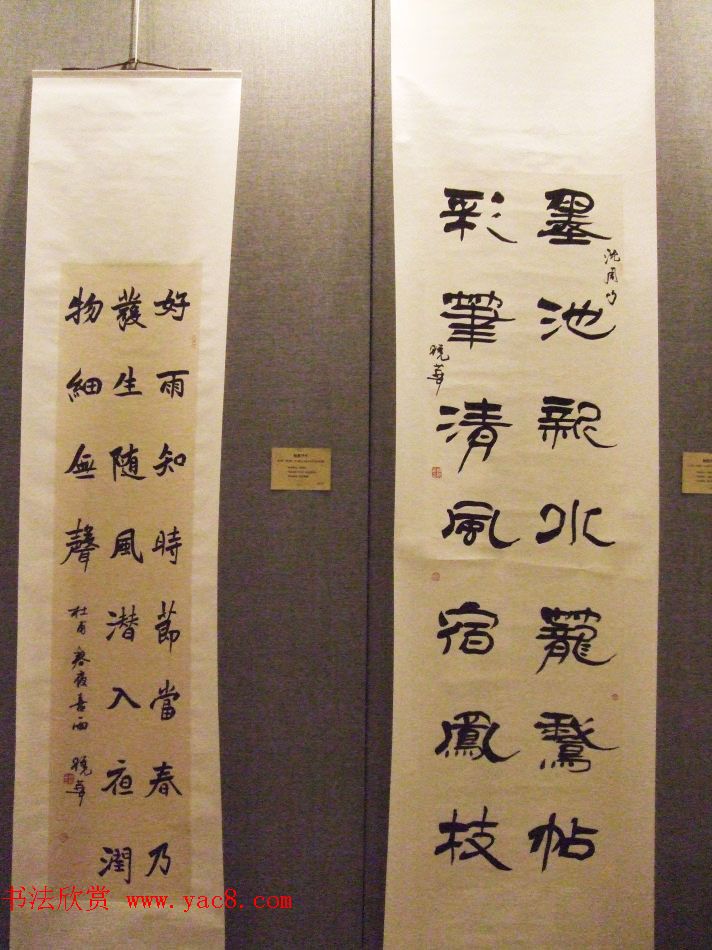 墨池新水籠鵞帖
沈周句
彩筆清風宿鳳枝
曉華
好雨知時節當春乃
發生随風潜入夜潤
物細無聲
杜甫春夜喜雨
曉華
书法欣赏 www.yac8.com